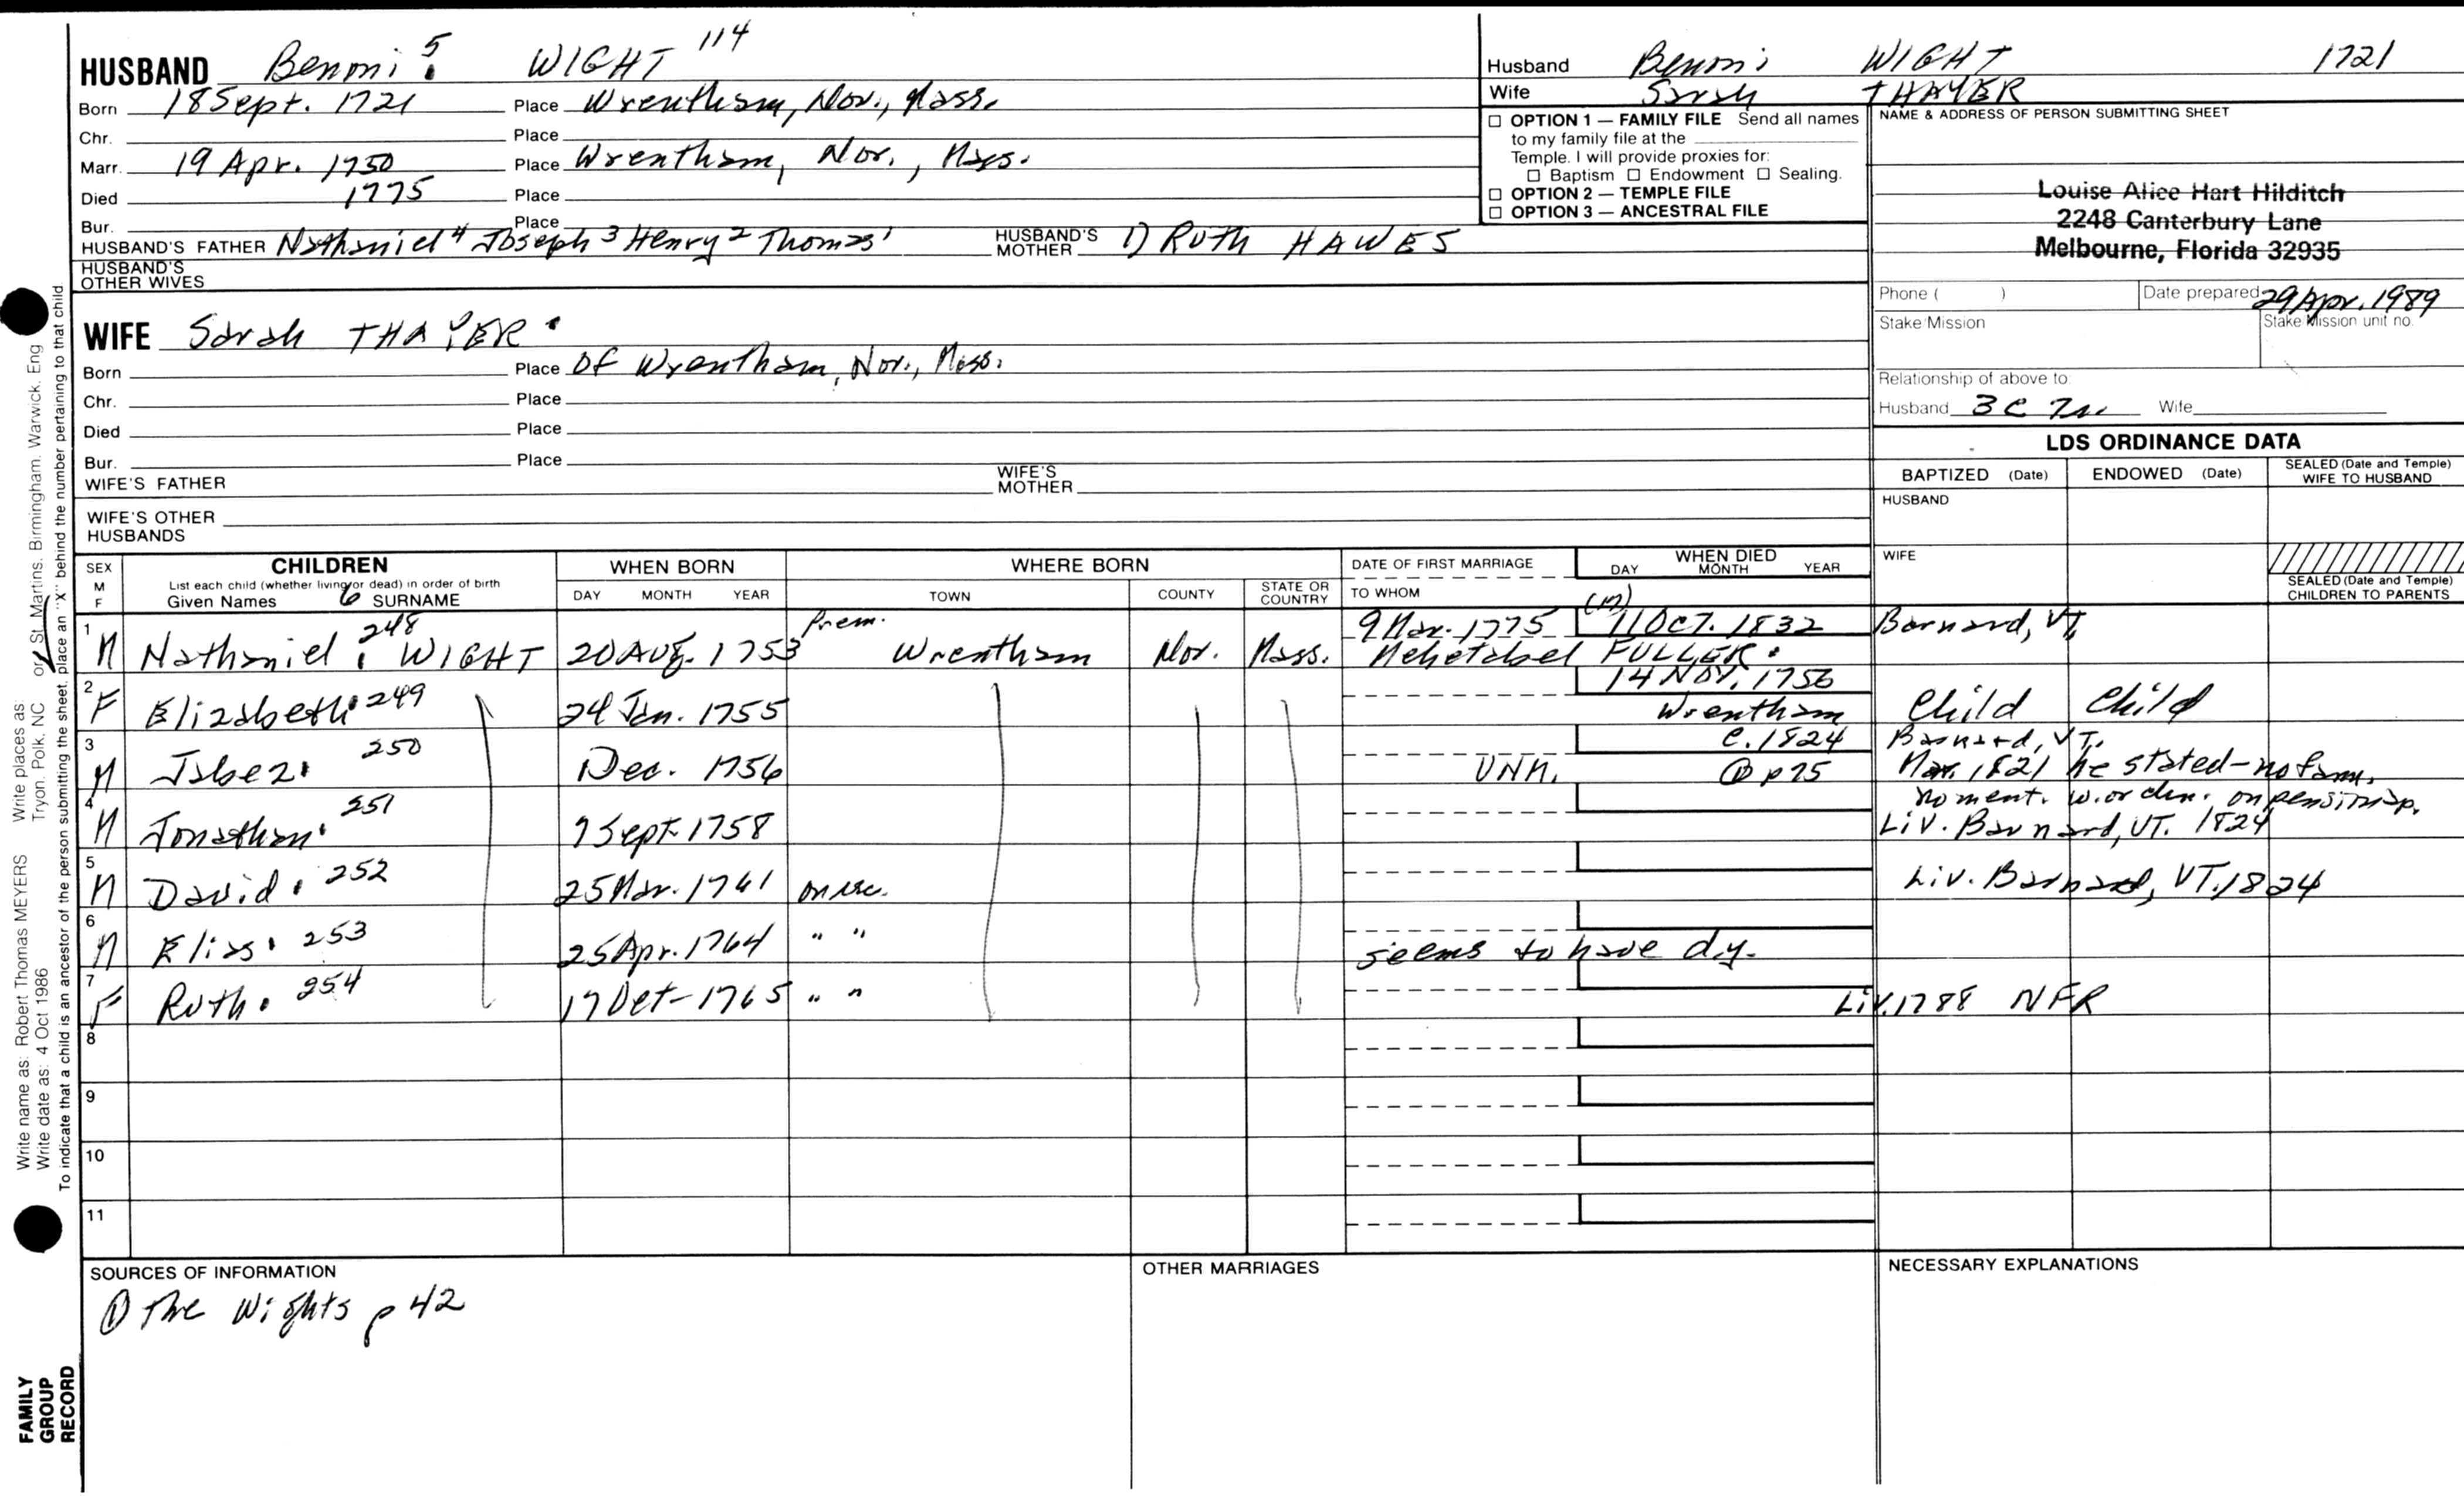 HUSBAND Benoni 5 WIGHT 114
Born 18 Sept. 1721 Place Wrentham, Nor., Mass.
Chr. Place
Marr. 19 Apr. 1750 Place Wrentham, Nor., Mass.
Died 1775 Place
Bur. Place
HUSBAND'S FATHER Nathaniel 4 Joseph 3 Henry 2 Thomas 1 HUSBAND'S MOTHER 1) RUTH HAWES
HUSBAND'S OTHER WIVES
WIFE Sarah THAYER
Born Place Of Wrentham, Nor., Mass.
Chr. Place
Died Place
Bur. Place
WIFE'S FATHER WIFE'S MOTHER
WIFE'S OTHER HUSBANDS
Husband Benoni WIGHT 1721
Wife Sarah THAYER
☐ OPTION 1 — FAMILY FILE Send all names
to my family file at the
Temple. I will provide proxies for:
☐ Baptism ☐ Endowment ☐ Sealing.
☐ OPTION 2 — TEMPLE FILE
☐ OPTION 3 — ANCESTRAL FILE
NAME & ADDRESS OF PERSON SUBMITTING SHEET
Louise Alice Hart Hilditch
2248 Canterbury Lane
Melbourne, Florida 32935
Phone ( ) Date prepared 29 Apr. 1989
Stake/Mission Stake Mission unit no.
Relationship of above to
Husband 3 C Wife
LDS ORDINANCE DATA
BAPTIZED (Date) ENDOWED (Date) SEALED (Date and Temple) WIFE TO HUSBAND
HUSBAND
WIFE
SEALED (Date and Temple) CHILDREN TO PARENTS
SEX M F CHILDREN WHEN BORN WHERE BORN DATE OF FIRST MARRIAGE WHEN DIED
List each child (whether living or dead) in order of birth
Given Names 6 SURNAME DAY MONTH YEAR TOWN COUNTY STATE OR COUNTRY TO WHOM DAY MONTH YEAR
1 M Nathaniel 248 WIGHT 20 Aug. 1753 Prem. Wrentham Nor. Mass. 9 Mar. 1775 11 Oct. 1832 Barnard, VT.
Mehetabel FULLER
2 F Elizabeth 249 24 Jan. 1755 14 Nov. 1756
Wrentham Child Child
3 M Jabez 250 Dec. 1756 UNM. c. 1824 Barnard, VT.
① p 75 Mar. 1821 he stated - no fam.
no ment. w. or chn. on pension ap.
4 M Jonathan 251 7 Sept 1758 Liv. Barnard, VT. 1824
5 M David 252 25 Mar. 1761 Liv. Barnard, VT. 1824
6 M Elias 253 25 Apr. 1764 " " seems to have d.y.
7 F Ruth 254 17 Oct - 1765 " " Liv. 1788 NFR
8
9
10
11
SOURCES OF INFORMATION
① The Wights p 42
OTHER MARRIAGES
NECESSARY EXPLANATIONS
Write name as: Robert Thomas MEYERS Write places as:
Write date as: 4 Oct 1986 Tryon, Polk, NC or St. Martins, Birmingham, Warwick, Eng
To indicate that a child is an ancestor of the person submitting the sheet, place an "X" behind the number pertaining to that child.
FAMILY
GROUP
RECORD